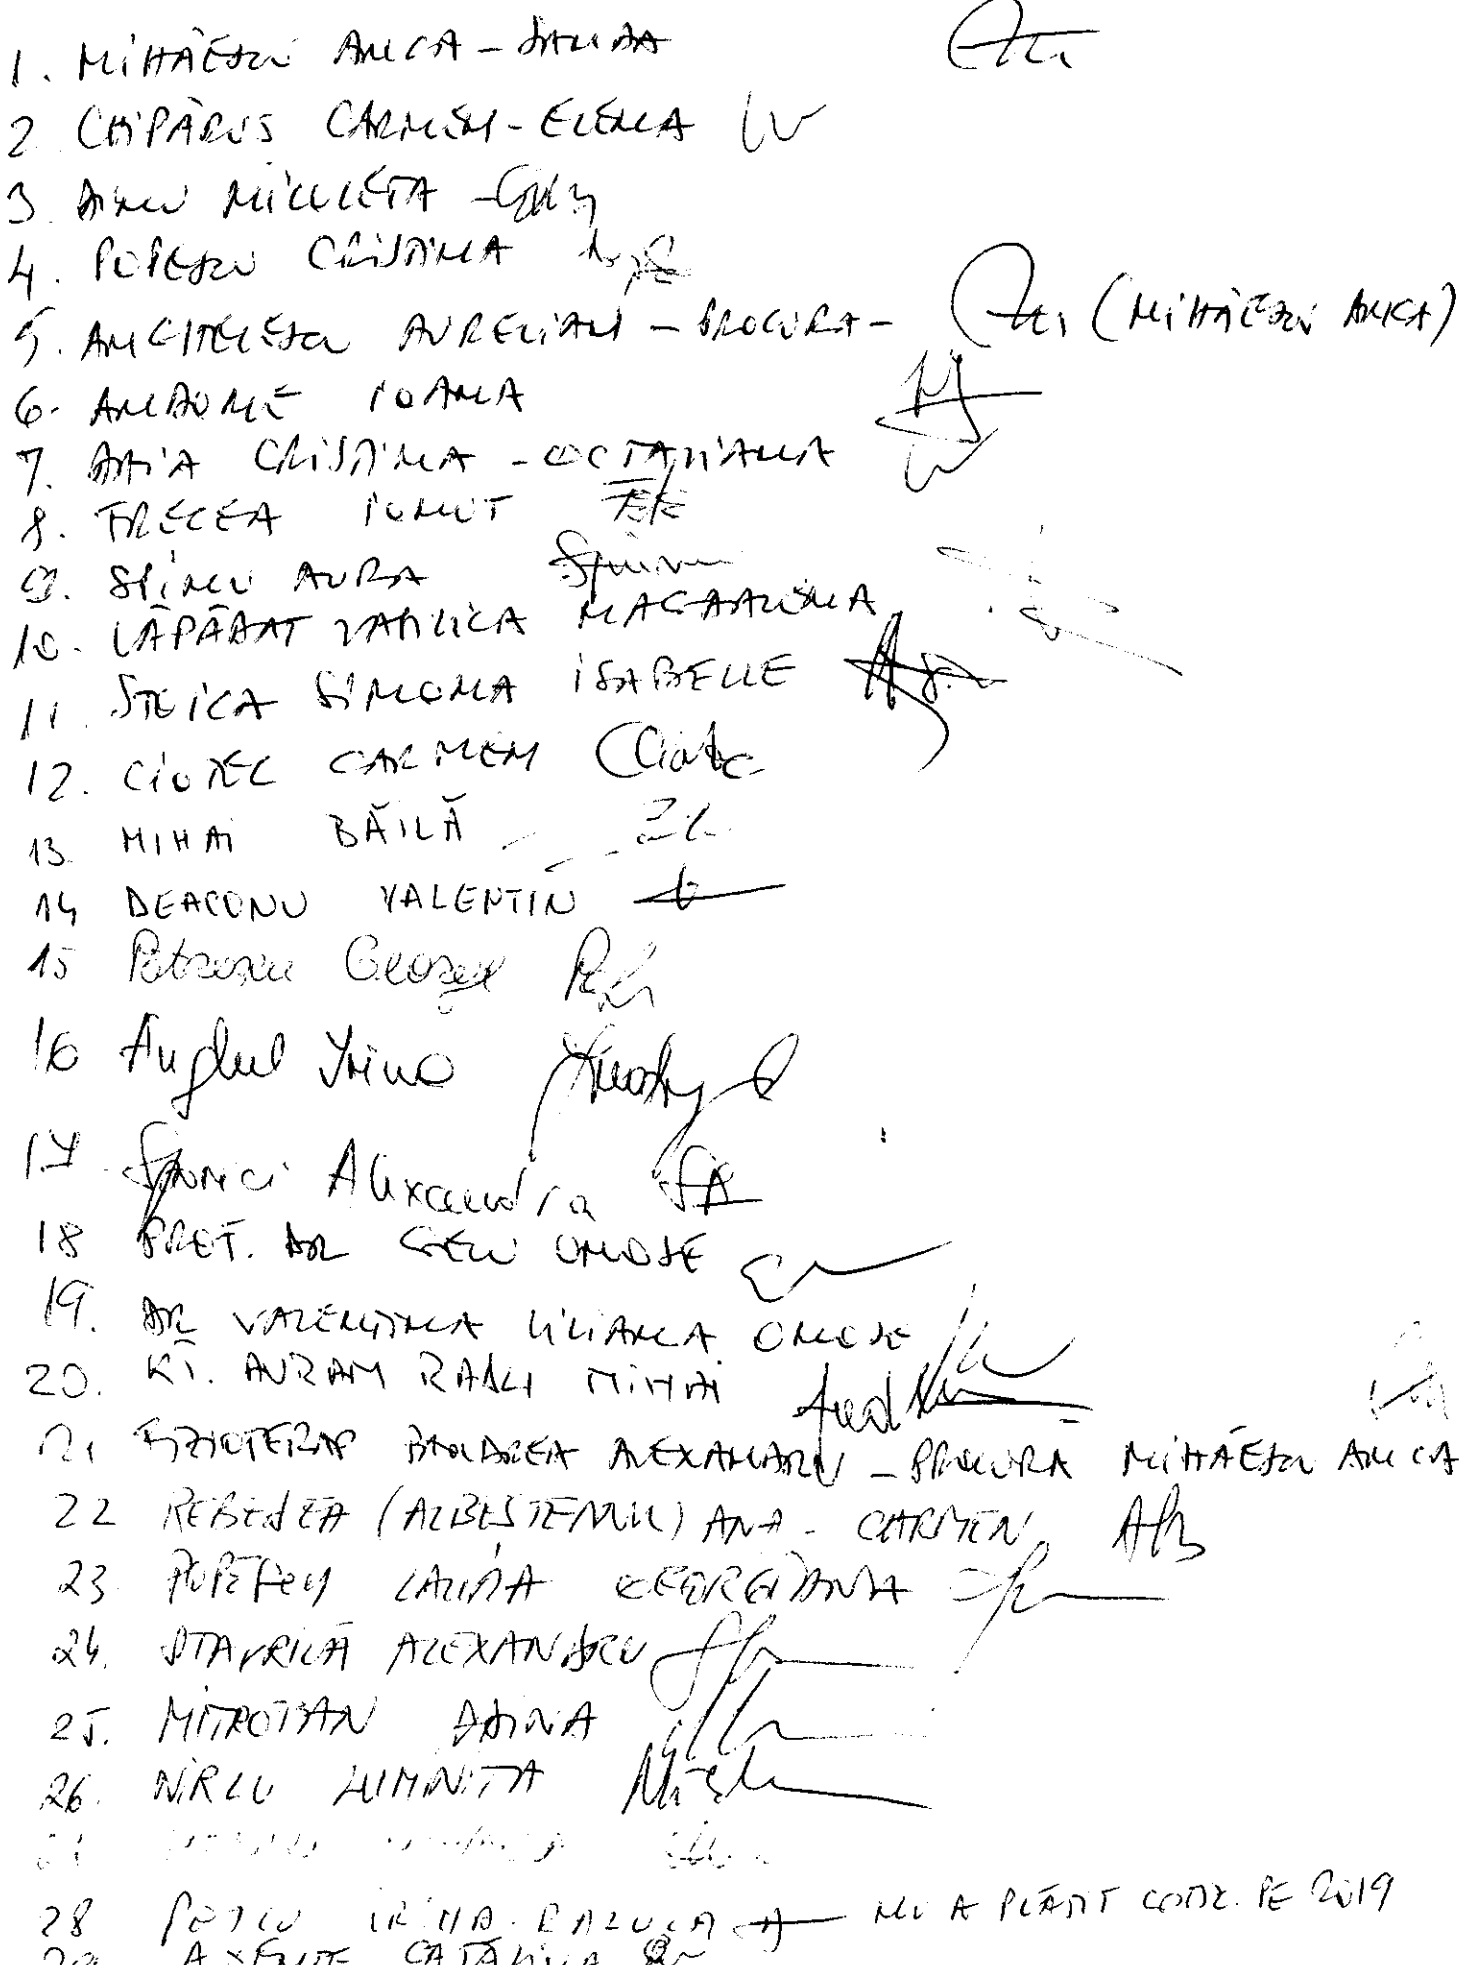 1. MIHĂESCU ANCA-SANDA
2 CHIPĂRUS CARMEN-ELENA
3. DINU NICULETA
4. POPESCU CRISTINA
5. ANGHELESCU AURELIAN - PROCURA - (MIHĂESCU ANCA)
6. ANDONE IOANA
7. DAIA CRISTINA - OCTAVIANA
8. TRECEA IONUT
9. SPINU AURA
10. LĂPĂDAT VASILICA MAGDALENA
11. STOICA SIMONA ISABELLE
12. CIOTEC CARMEN
13. MIHAI BĂILĂ
14 DEACONU VALENTIN
15 George
16 Anghel Irina
17 Alexandra
18 PROF. DR GELU ONOSE
19. DR VALENTINA LILIANA ONOSE
20. KT. AVRAM RADU MIHAI
21 FIZIOTERAP ALEXANDRU - PROCURĂ MIHĂESCU ANCA
22 REBEJEA (ALBESTEANU) ANA-CARMEN
23. POPESCU LAURA GEORGIANA
24. STAVRICĂ ALEXANDRU
25. MITROIAN DOINA
26. NIRCU LUMINITA
28 IRINA-RALUCA NU A PLĂTIT COTIZ. PE 2019
AXENTE CATĂLINA